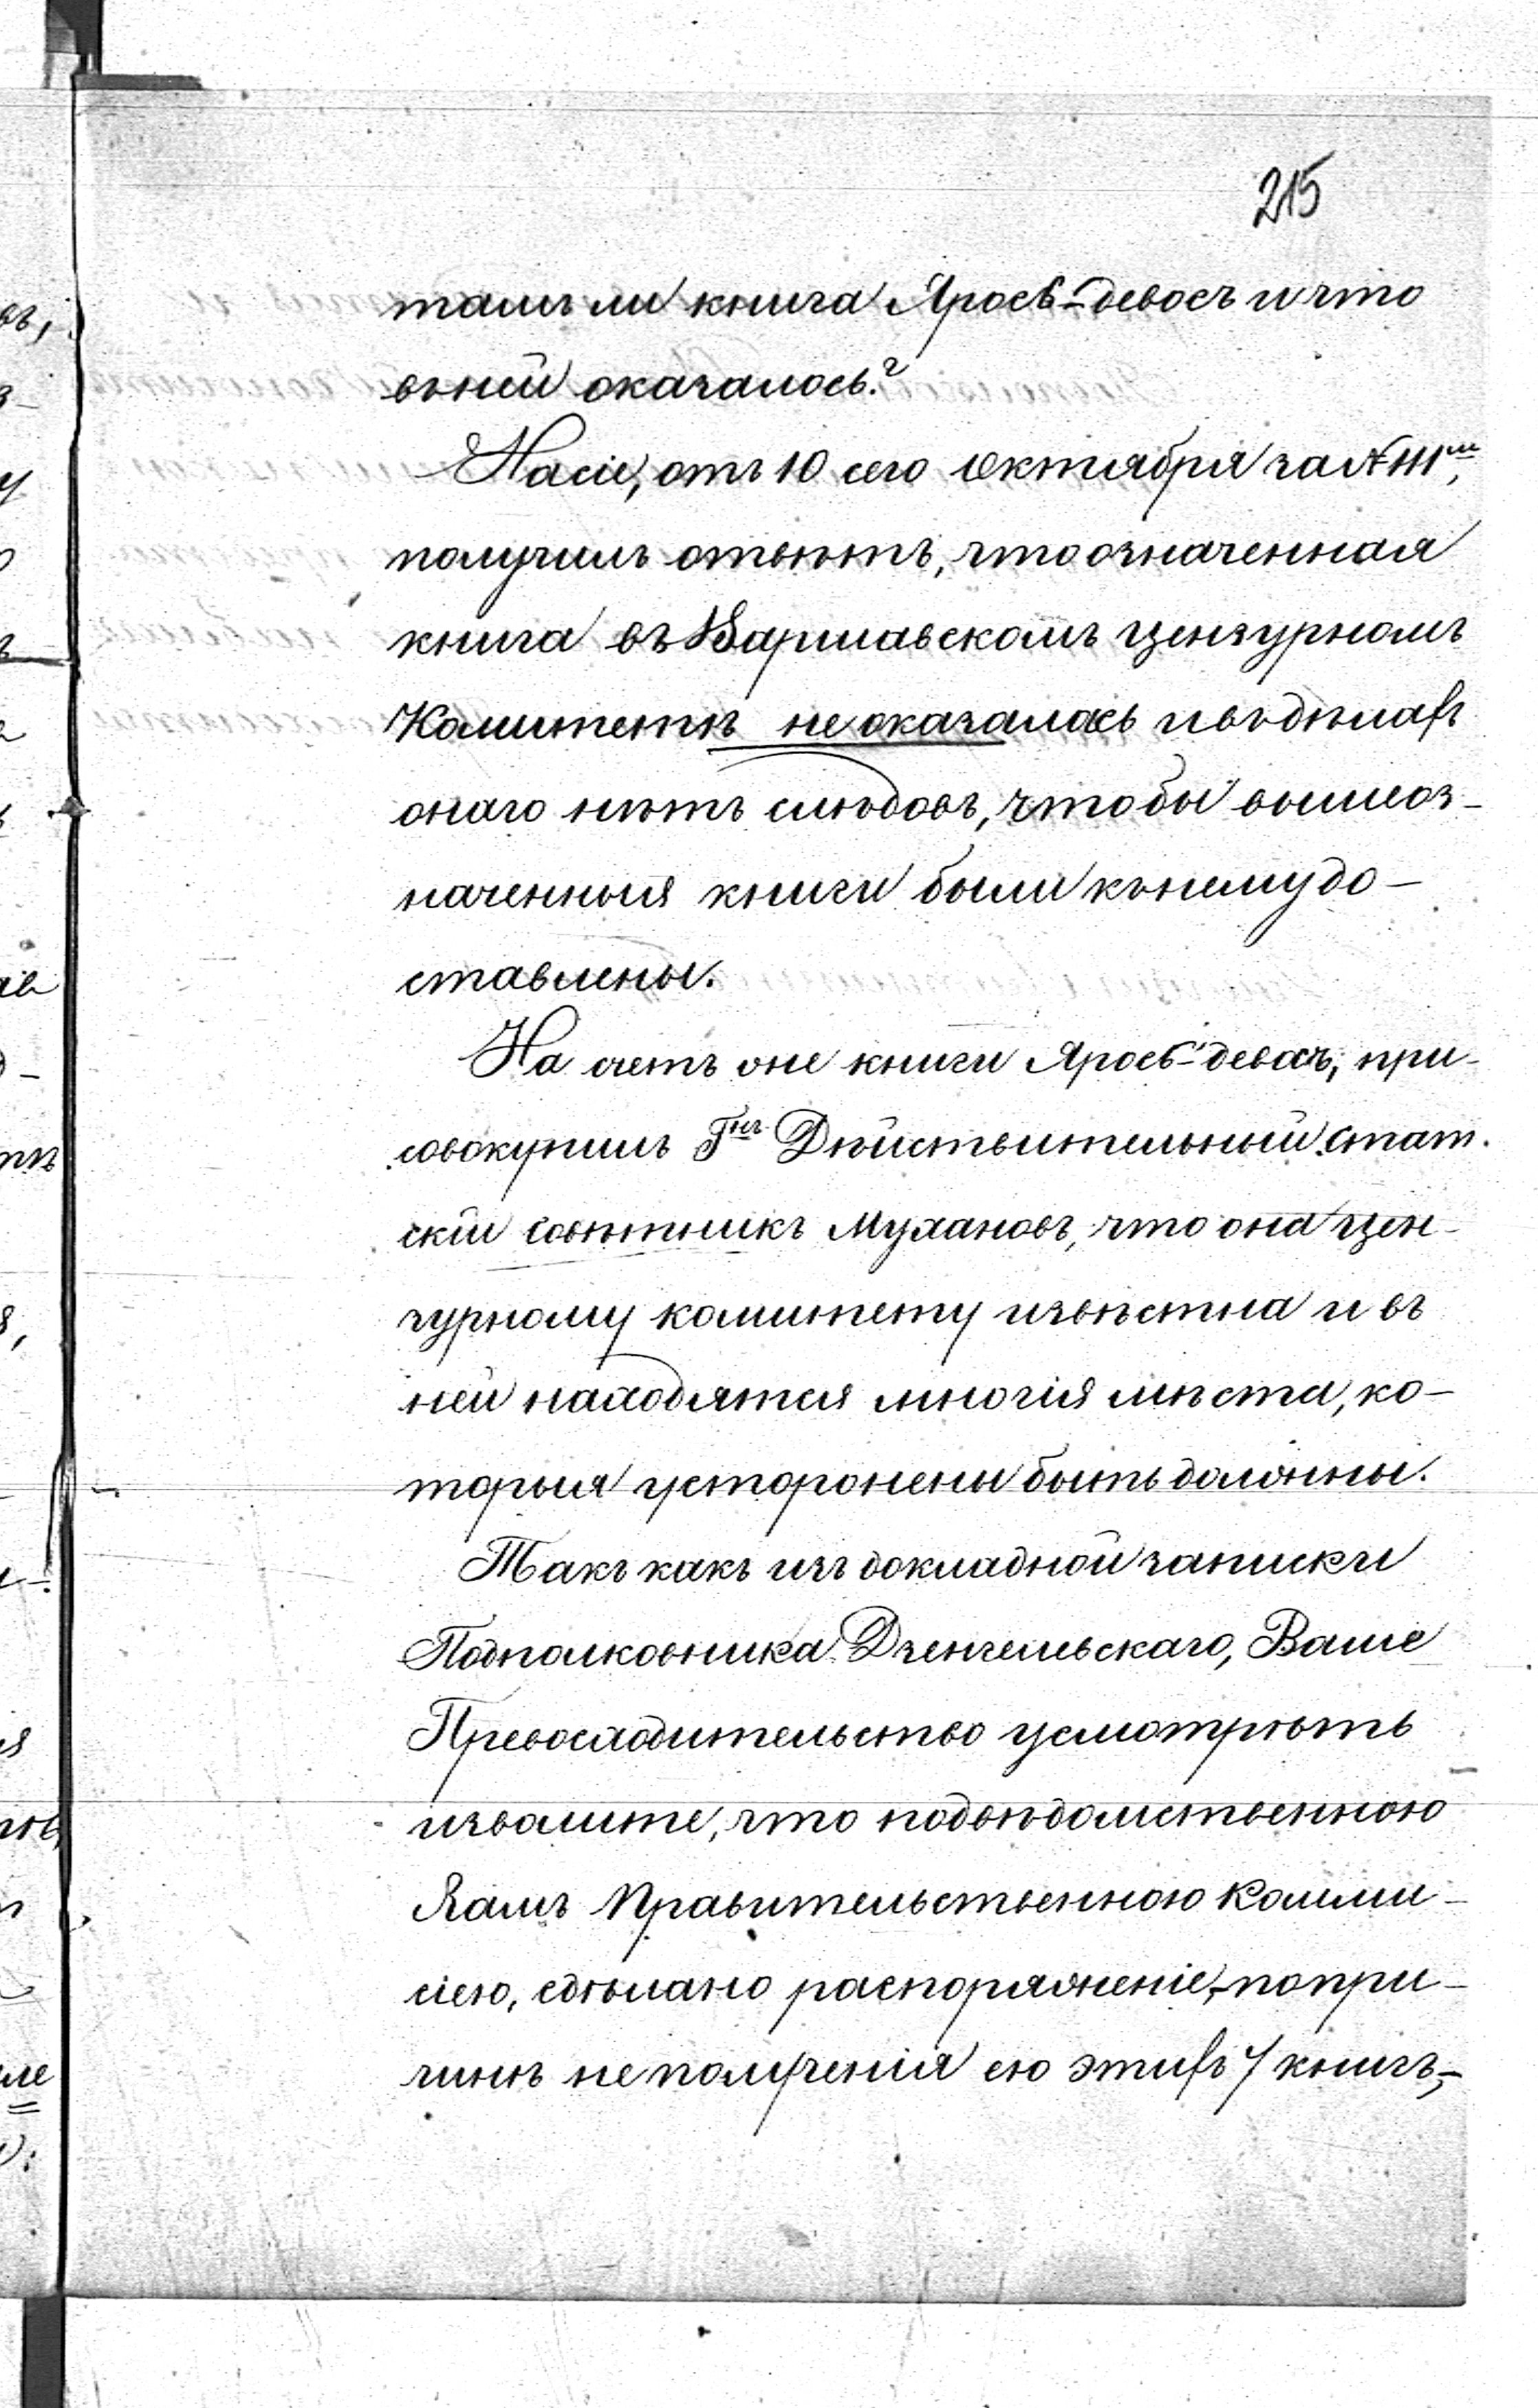 215
тамъ ли книга Яросъ-девосъ и что
въ ней оказалось?
На сіе, отъ 10 сего Октября за №111ᵐ,
получилъ отвѣтъ, что означенная
книга въ Варшавскомъ Цензурномъ
Комитетѣ не оказалась и въ дѣлахъ
онаго нѣтъ слѣдовъ, чтобы вышеоз-
наченныя книги были къ нему до-
ставлены.
На счетъ оне книги Яросъ-девосъ, при-
совокупилъ Гⁿъ Дѣйствительный стат.
скій Совѣтникъ Мухановъ, что она Цен-
зурному комитету извѣстна и въ
ней находятся многія мѣста, ко-
торыя усторонены быть должны.
Такъ какъ изъ докладной записки
Подполковника Дзензельскаго, Ваше
Превосходительство усмотрѣть
изволите, что подвѣдомственною
Вамъ Правительственною Комми-
сіею, сдѣлано распоряженіе, по при-
чинѣ не полученія ею этихъ 7 книгъ,-